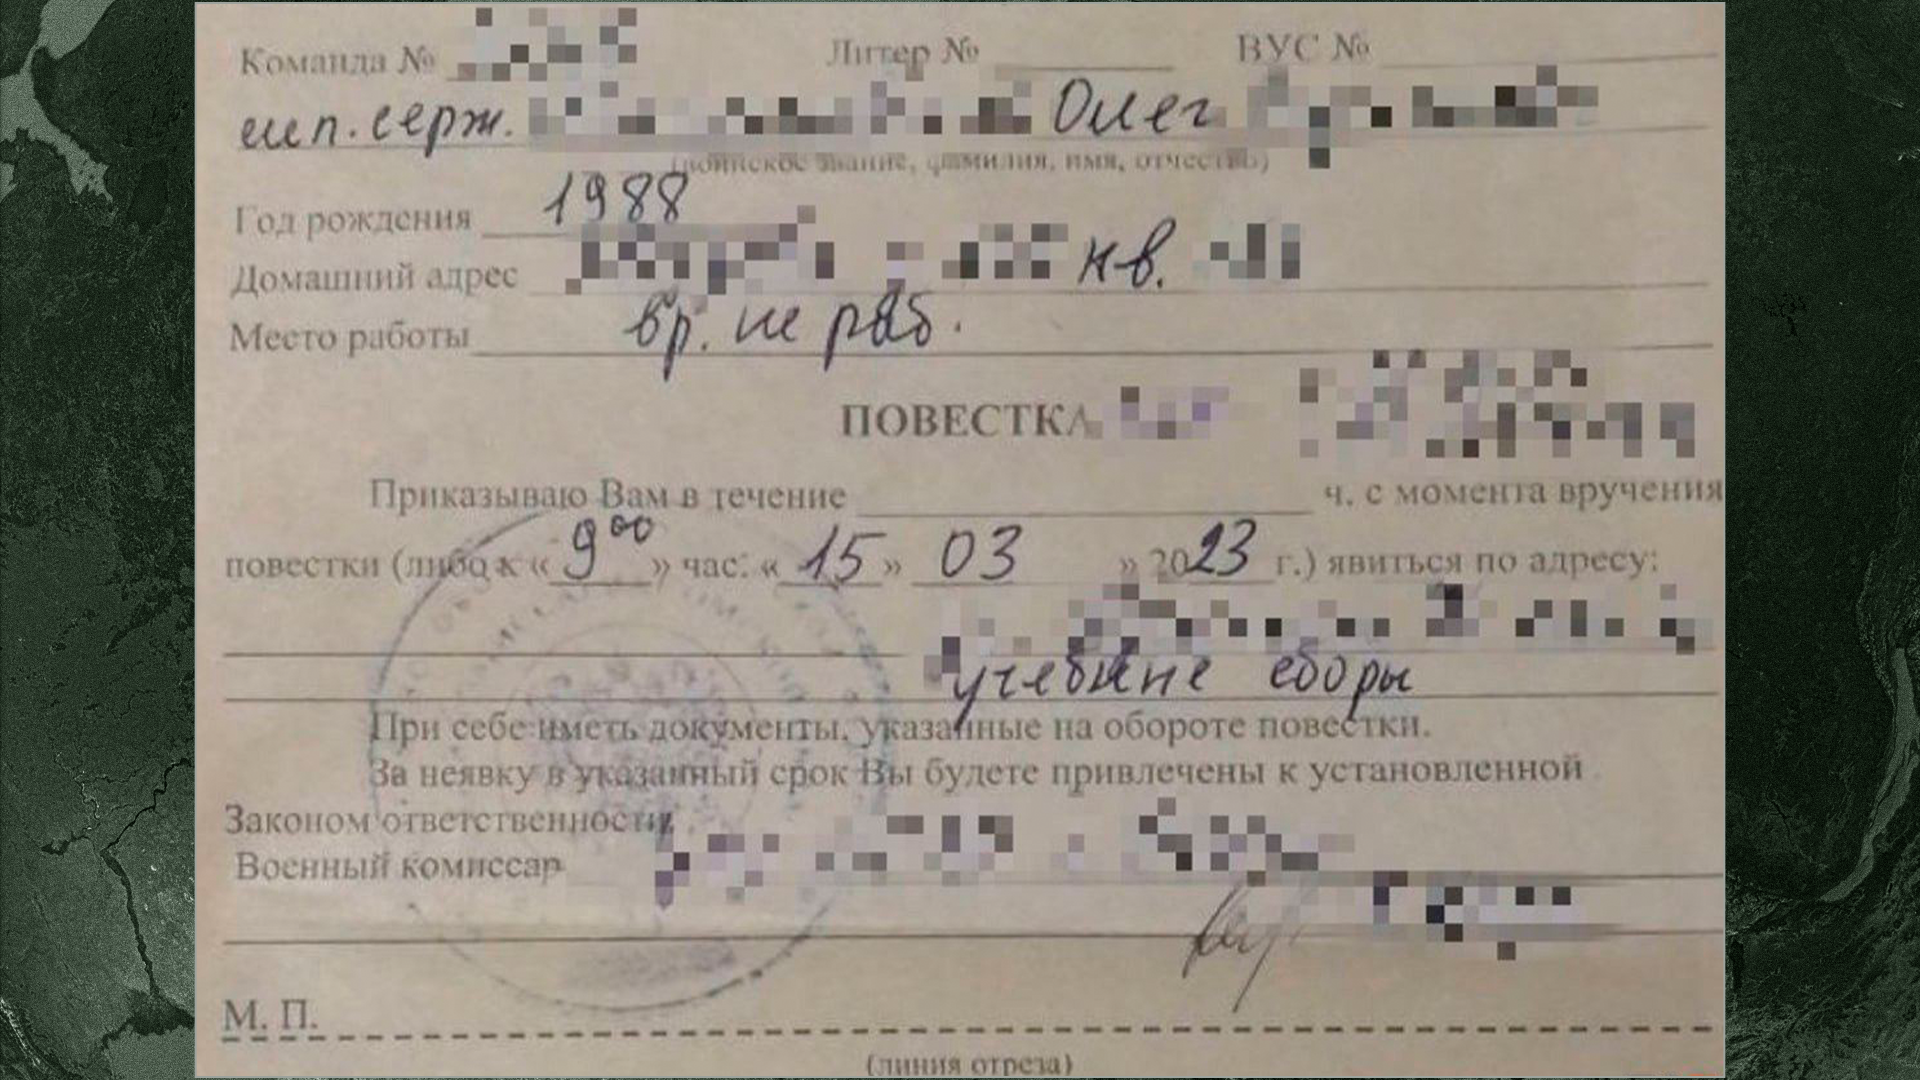 Команда № Литер № ВУС №
мл. серж. Олег
(воинское звание, фамилия, имя, отчество)
Год рождения 1988
Домашний адрес кв.
Место работы вр. не раб.
ПОВЕСТКА
Приказываю Вам в течение ч. с момента вручения
повестки (либо к « 9 00 » час. « 15 » 03 » 2023 г.) явиться по адресу:
учебные сборы
При себе иметь документы, указанные на обороте повестки.
За неявку в указанный срок Вы будете привлечены к установленной
Законом ответственности.
Военный комиссар
М. П.
(линия отреза)